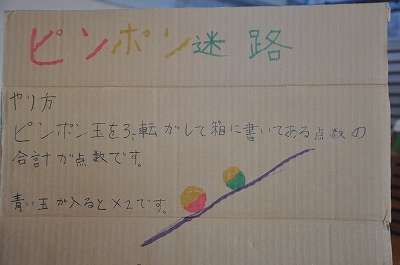 ピンポン迷路
やり方
ピンポン玉を3、転がして箱に書いてある点数の
合計が点数です。
青い玉が入ると×2です。